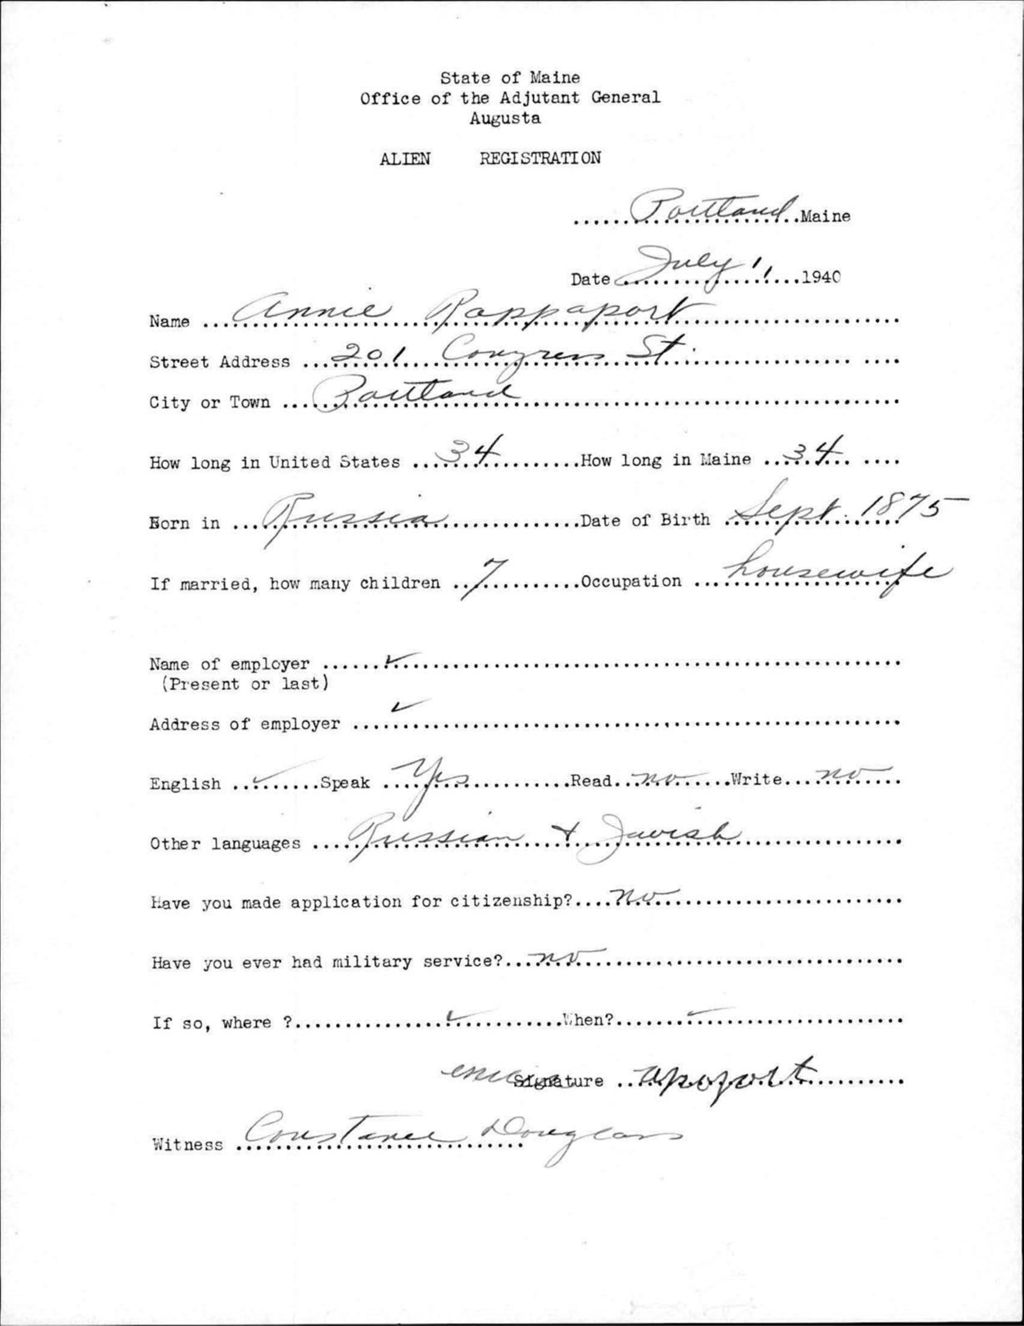 State of Maine
Office of the Adjutant General
Augusta
ALIEN REGISTRATION
......Portland..Maine
Date July 11...1940
Name ...Annie Rappaport...
Street Address ...201 Congress St....
City or Town ...Portland...
How long in United States ...34...How long in Maine ...34... ....
Born in ...Russia...Date of Birth Sept. 1875
If married, how many children ..7...Occupation ...housewife
Name of employer ......✓...
(Present or last)
Address of employer ....✓...
English ..✓...Speak ...Yes...Read..no...Write...no...
Other languages ....Russian & Jewish...
Have you made application for citizenship?....no...
Have you ever had military service?...no...
If so, where ?...✓...When?...✓...
Signature ..apoport...
Witness ..Constance Douglass